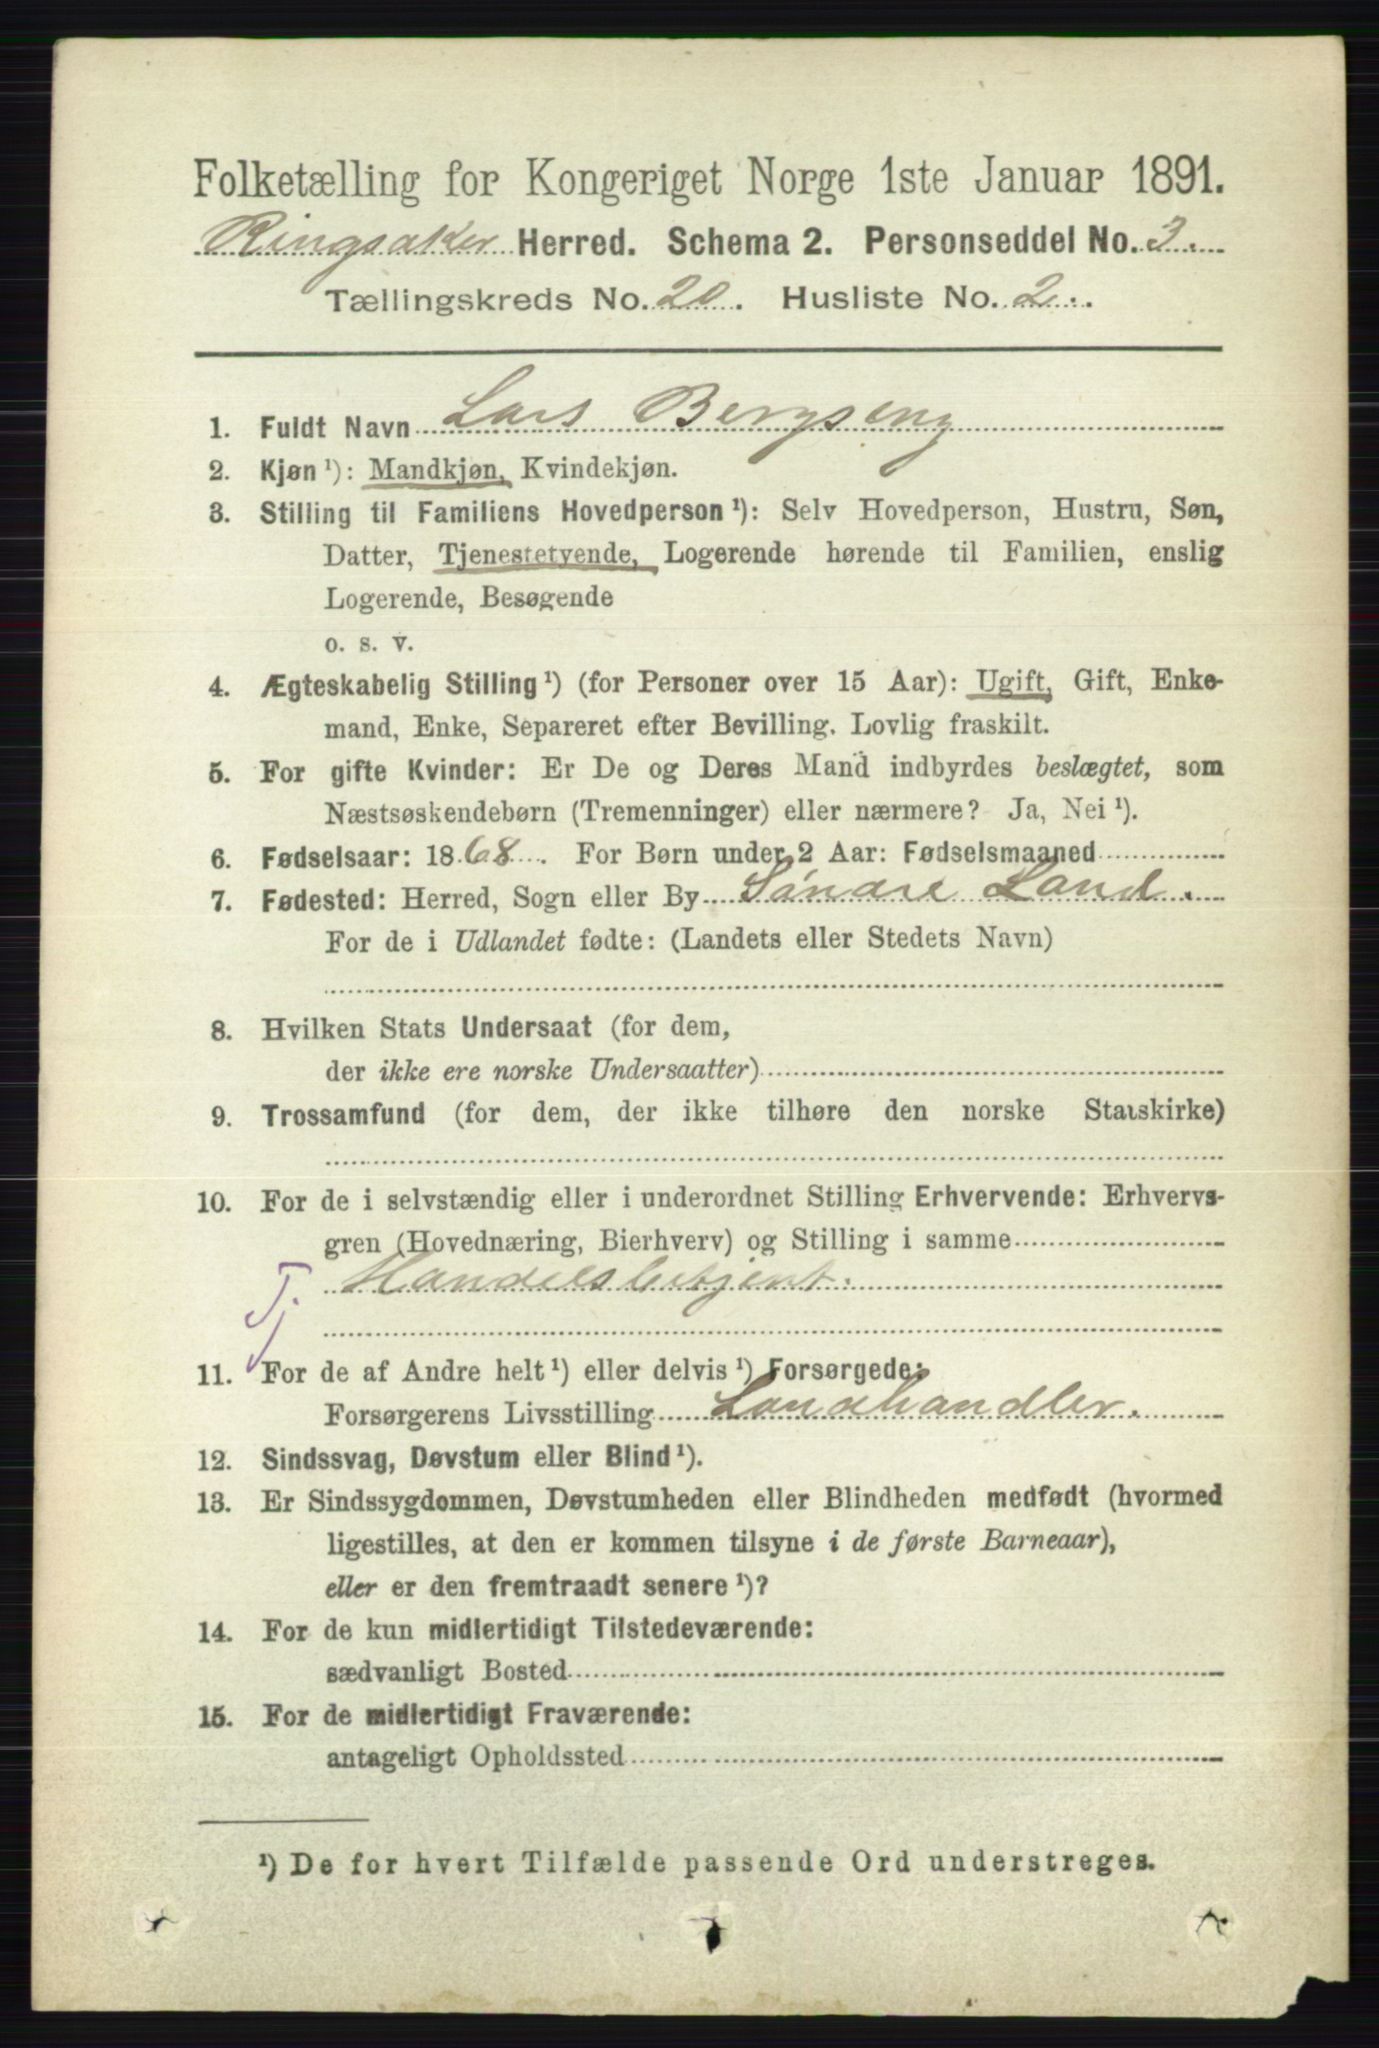 Folketælling for Kongeriget Norge 1ste Januar 1891.
Ringsaker Herred. Schema 2. Personseddel No. 3.
Tællingskreds No. 20. Husliste No. 2.
1. Fuldt Navn Lars Bergseng
2. Kjøn ¹): Mandkjøn, Kvindekjøn.
3. Stilling til Familiens Hovedperson ¹): Selv Hovedperson, Hustru, Søn,
Datter, Tjenestetyende, Logerende hørende til Familien, enslig
Logerende, Besøgende
o. s. v.
4. Ægteskabelig Stilling ¹) (for Personer over 15 Aar): Ugift, Gift, Enke-
mand, Enke, Separeret efter Bevilling. Lovlig fraskilt.
5. For gifte Kvinder: Er De og Deres Mand indbyrdes beslægtet, som
Næstsøskendebørn (Tremenninger) eller nærmere? Ja, Nei ¹).
6. Fødselsaar: 1868. For Børn under 2 Aar: Fødselsmaaned
7. Fødested: Herred, Sogn eller By Søndre Land.
For de i Udlandet fødte: (Landets eller Stedets Navn)
8. Hvilken Stats Undersaat (for dem,
der ikke ere norske Undersaatter)
9. Trossamfund (for dem, der ikke tilhøre den norske Statskirke)
10. For de i selvstændig eller i underordnet Stilling Erhvervende: Erhvervs-
gren (Hovednæring, Bierhverv) og Stilling i samme
Handelsbetjent.
Tj
11. For de af Andre helt ¹) eller delvis ¹) Forsørgede:
Forsørgerens Livsstilling Landhandler.
12. Sindssvag, Døvstum eller Blind ¹).
13. Er Sindssygdommen, Døvstumheden eller Blindheden medfødt (hvormed
ligestilles, at den er kommen tilsyne i de første Barneaar),
eller er den fremtraadt senere ¹)?
14. For de kun midlertidigt Tilstedeværende:
sædvanligt Bosted
15. For de midlertidigt Fraværende:
antageligt Opholdssted
¹) De for hvert Tilfælde passende Ord understreges.